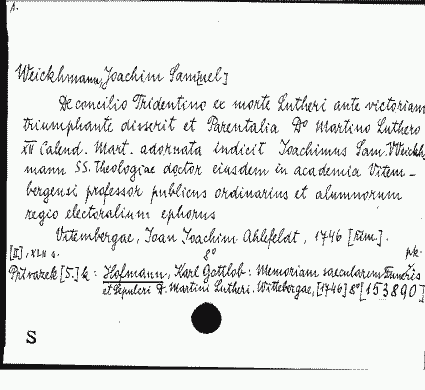 A.
Weickhmann, Joachim Sam[uel]
De concilio Tridentino ex morte Lutheri ante victoriam
triumphante disserit et Parentalia Do Martino Luthero
XII Calend. Mart. adornata indicit Joachimus Sam. Weickh-
mann SS. Theologiae doctor eiusdem in academia Vitem-
bergensi professor publicus ordinarius et alumnorum
regio electoralium ephorus
Vitembergae, Joan Joachim Ahlefeldt, 1746
[II], XLII s. 8° pk.
Přívazek [5.] k: Hofmann, Karl Gottlob: Memoriam saecularem Funeris
et Sepulcri D. Martini Lutheri. Wittebergae, [1746] 8° [153890]
S